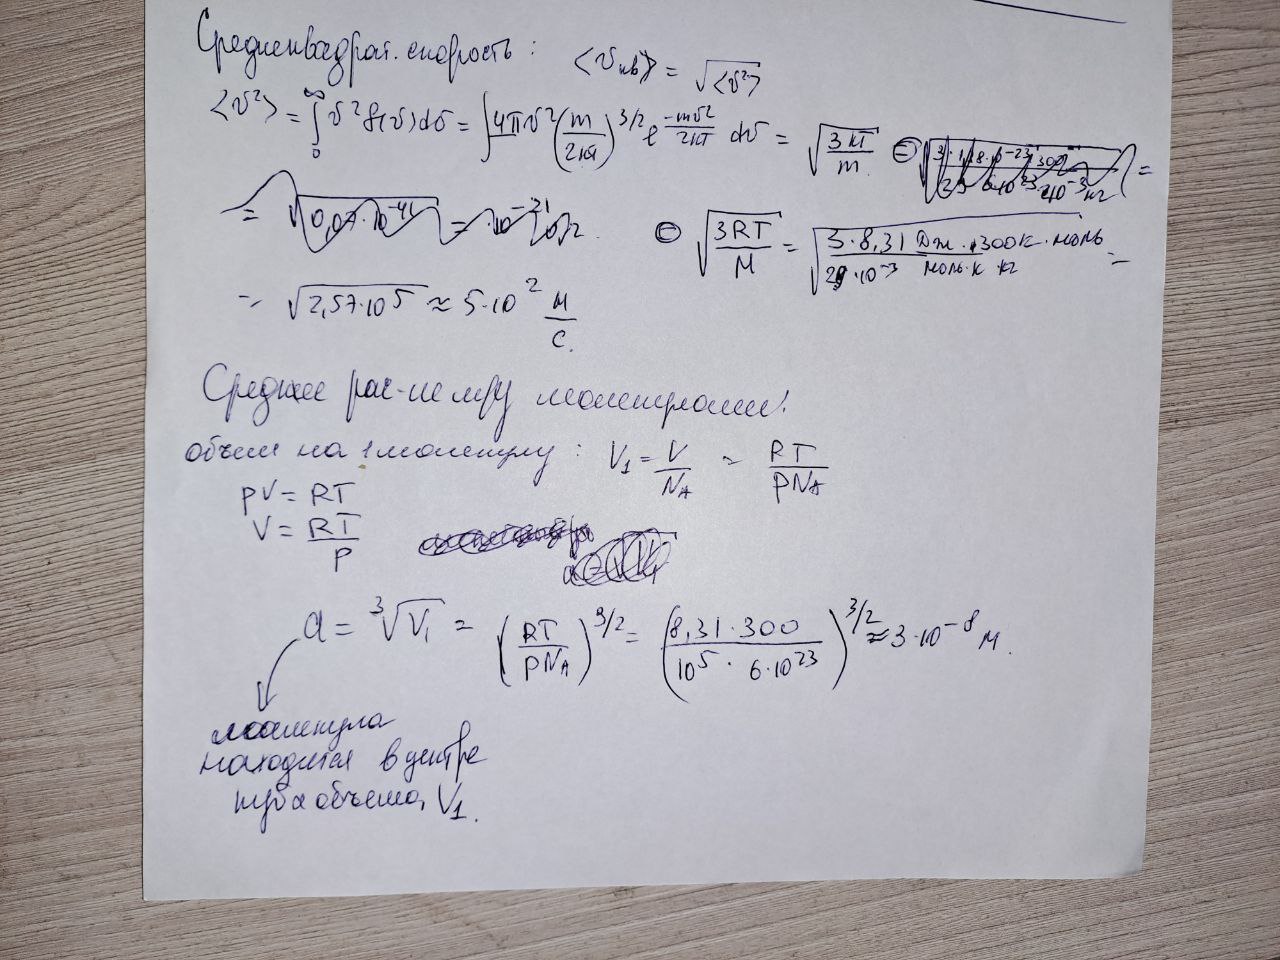 Среднеквадрат. скорость: <v_кв> = √<v²>
<v²> = ∫₀^∞ v² f(v) dv = ∫ 4πv² (m/2kT)^3/2 e^(-mv²/2kT) dv = √(3kT/m) =
= √(3RT/M) = √(3·8,31 Дж·300К·моль / 29·10⁻³ моль·К кг) =
= √(2,57·10⁵) ≈ 5·10² м/с.
Среднее рас-ие мру молекулами:
объем на 1 молекулу: V₁ = V/N_A = RT/PN_A
pV = RT
V = RT/P
a = ³√V₁ = (RT/PN_A)^3/2 = (8,31·300 / 10⁵·6·10²³)^3/2 ≈ 3·10⁻⁸ м.
молекула
находится в центре
куба объема V₁.